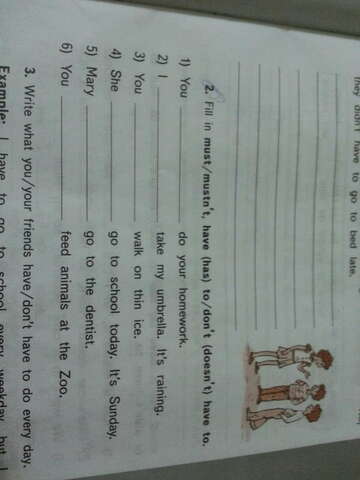 they didn't have to go to bed late.
2. Fill in must/mustn't, have (has) to/don't (doesn't) have to.
1) You ________ do your homework.
2) I ________ take my umbrella. It's raining.
3) You ________ walk on thin ice.
4) She ________ go to school today. It's Sunday.
5) Mary ________ go to the dentist.
6) You ________ feed animals at the Zoo.
3. Write what you/your friends have/don't have to do every day.
Example: I have to go to school every weekday, but I